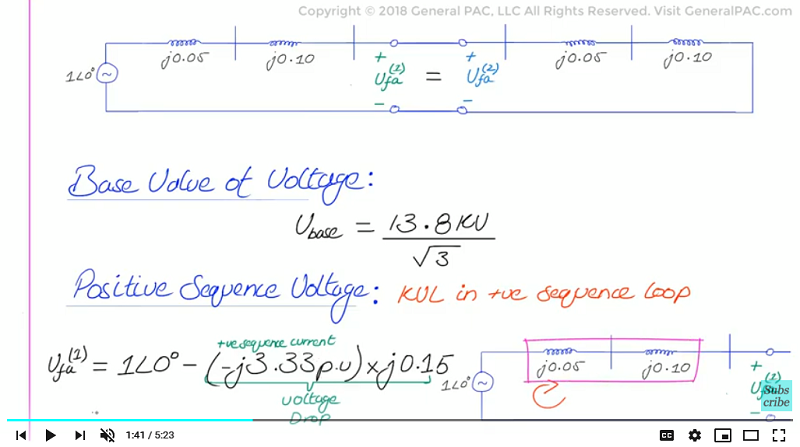 Copyright © 2018 General PAC, LLC All Rights Reserved. Visit GeneralPAC.com
j0.05 j0.10 + + j0.05 j0.10
1∠0° ~ Vfa(1) = Vfa(2)
- -
Base Value of Voltage:
Vbase = 13.8KV / √3
Positive Sequence Voltage: KVL in +ve sequence loop
+ve sequence current
Vfa(1) = 1∠0° - (-j3.33p.u) x j0.15
j0.05 j0.10 +
1∠0° ~
Voltage
Drop
Subscribe
-
1:41 / 5:23
CC